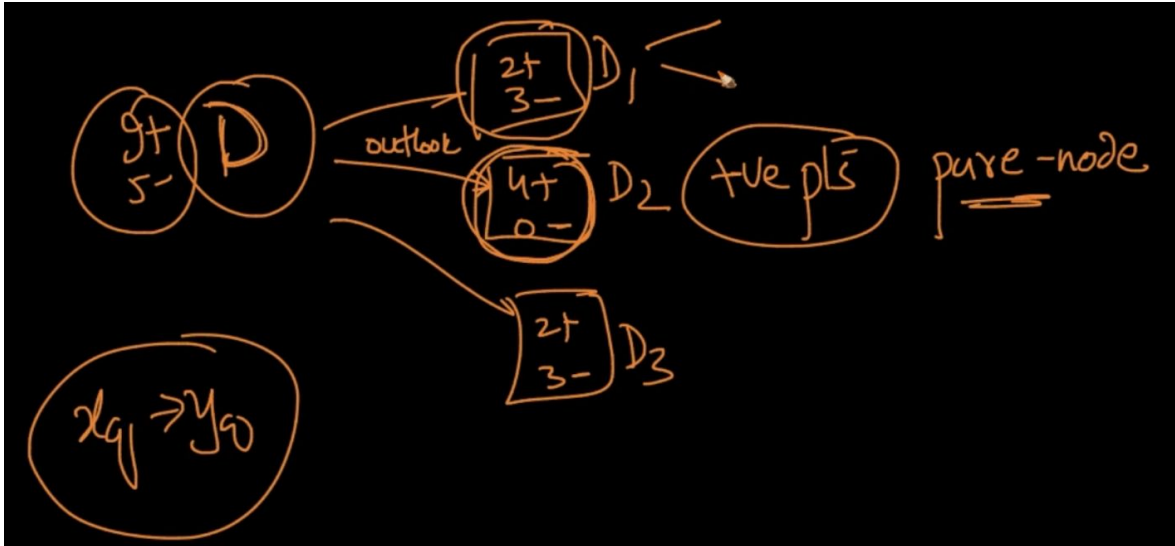 9+
5-
D
outlook
2+
3-
D1
4+
0-
D2
+ve pts
pure-node
2+
3-
D3
xq → yq